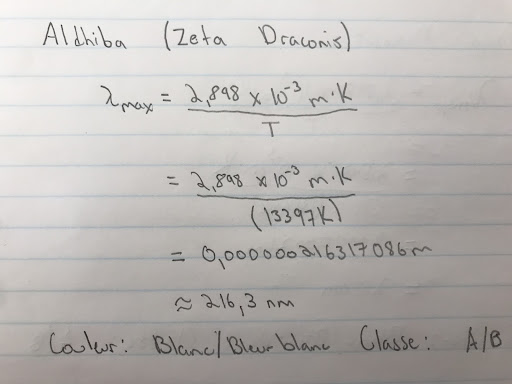 Aldhiba (Zeta Draconis)
λmax = 2,898 × 10⁻³ m·K / T
= 2,898 × 10⁻³ m·K / (13397K)
= 0,000000216317086m
≈ 216,3 nm
Couleur: Blanc/Bleu blanc Classe: A/B